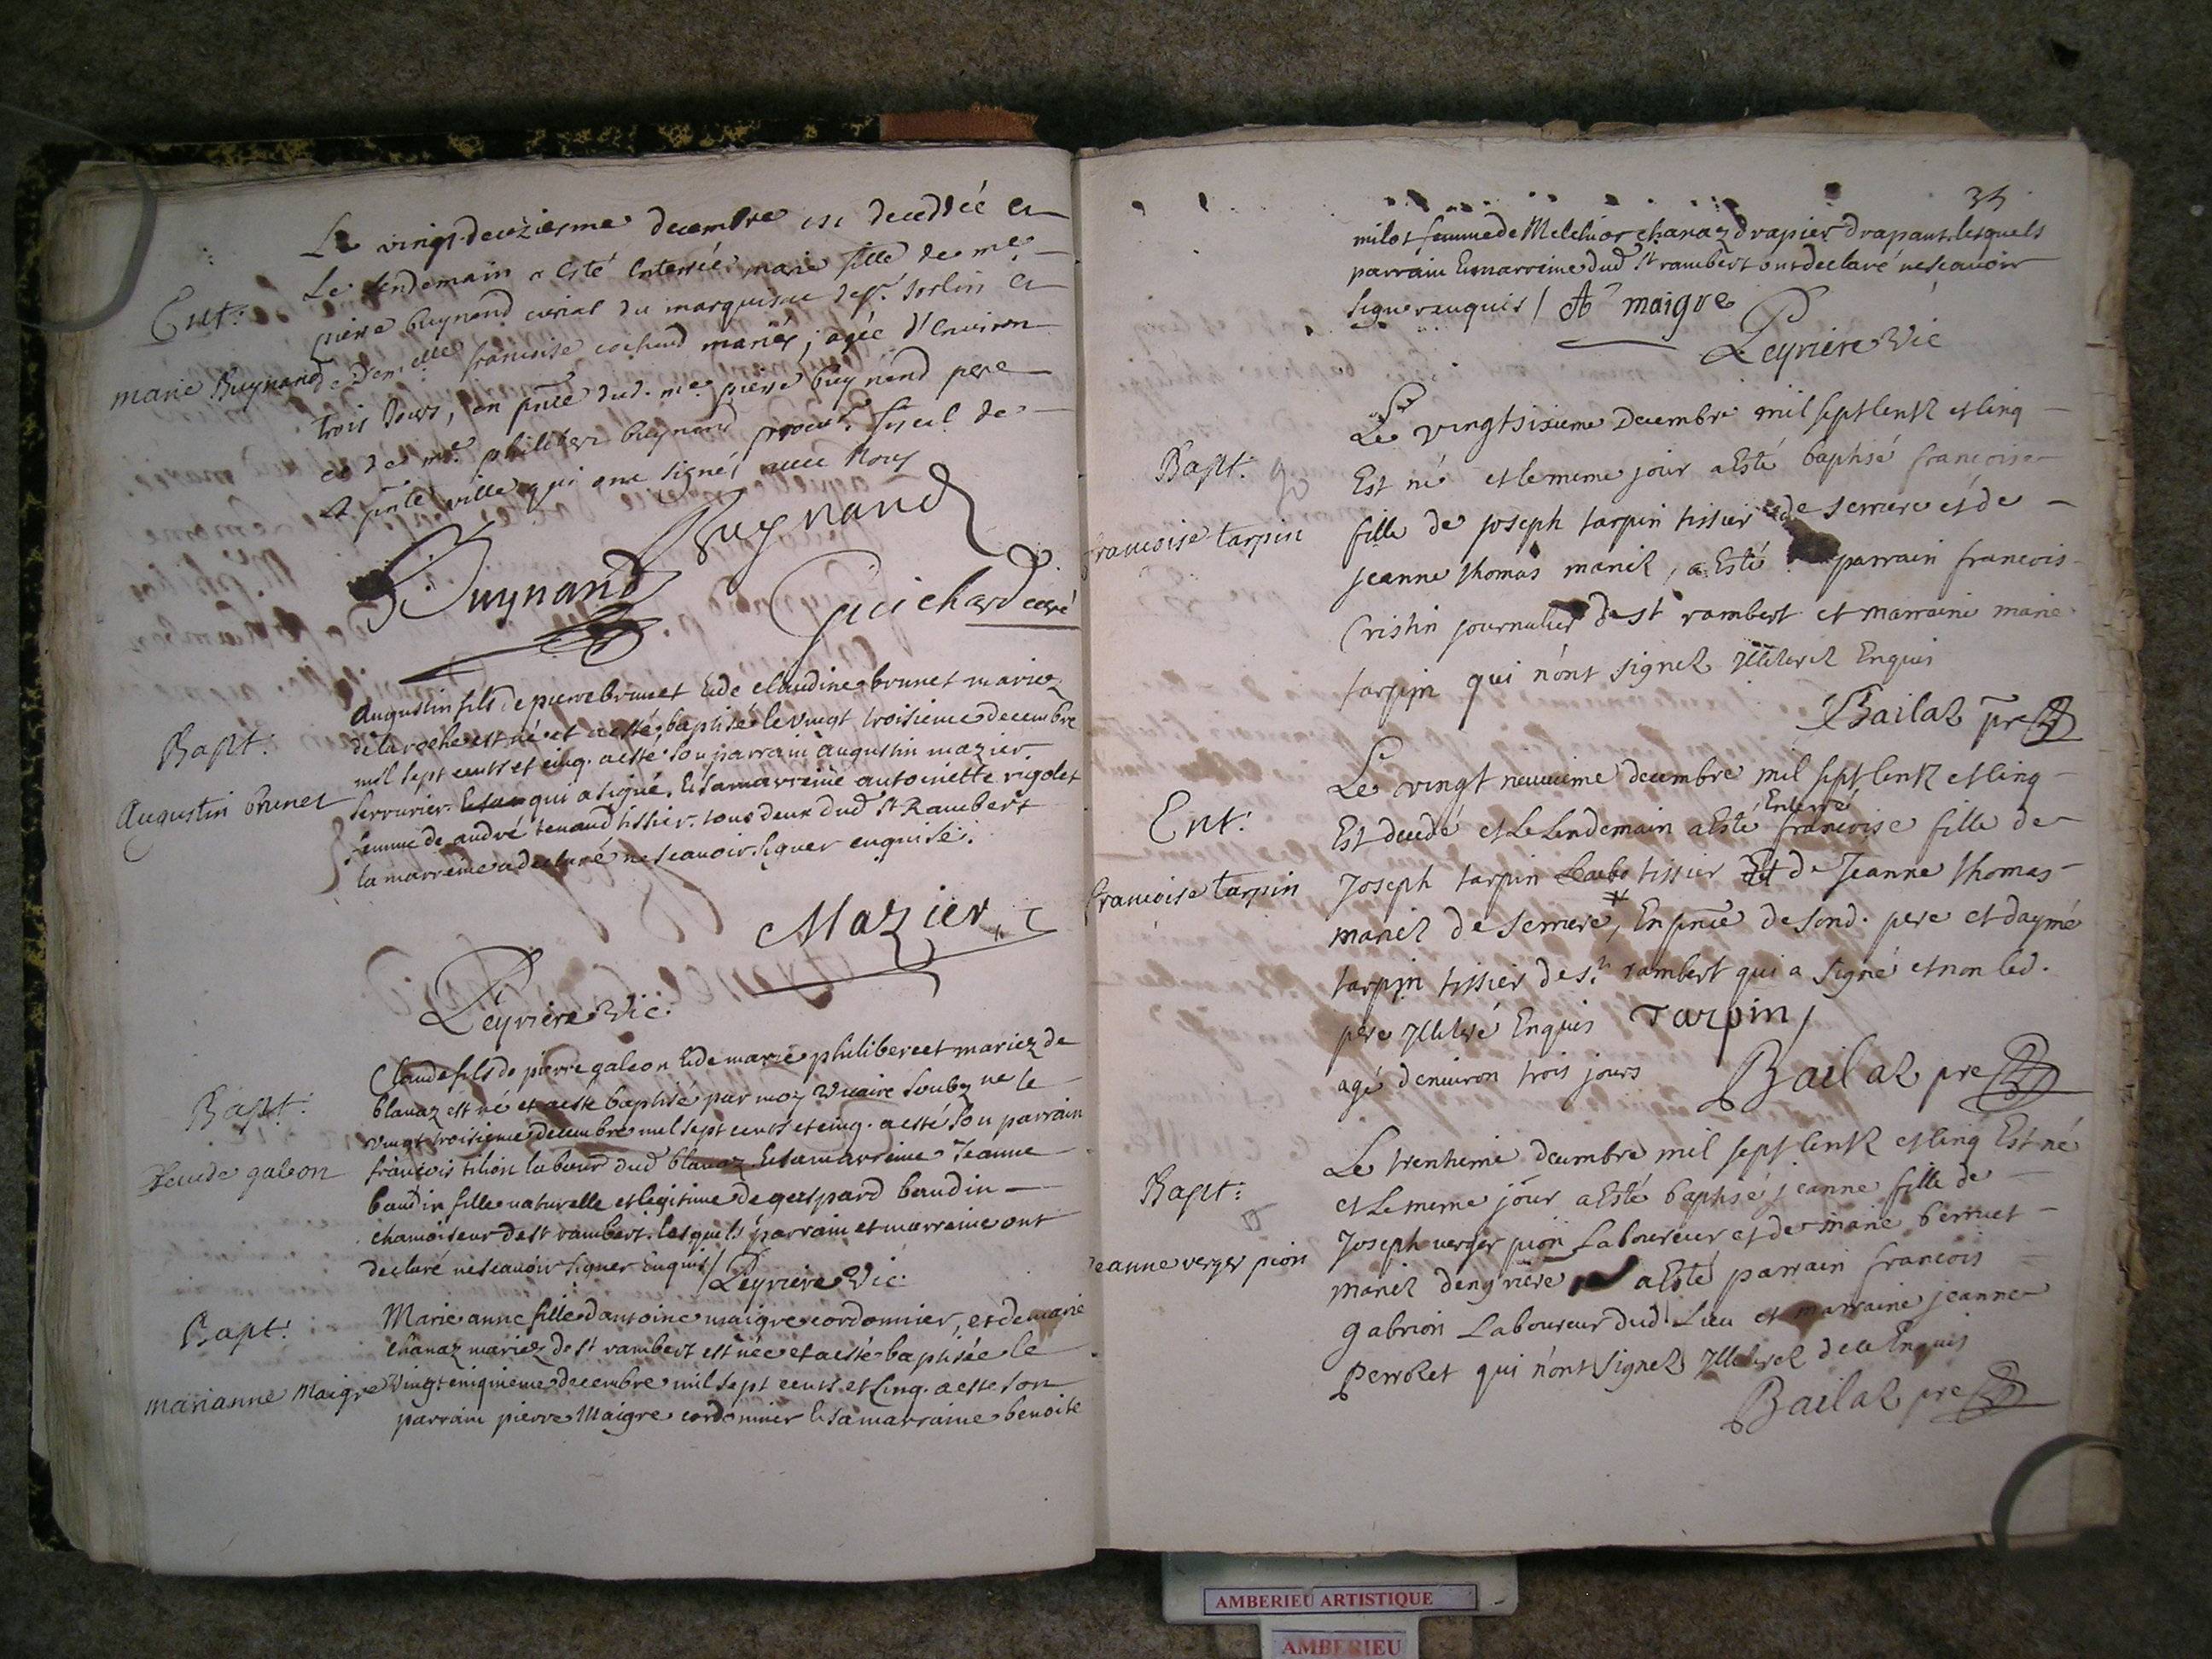 Le vingt deuziesme decembre est decedéé et
Le lendemain a esté enterréé marie fille de me.
Ent:
pierre buynand curial du marquisat de st. Sorlin et
marie Buynand
de Demlle francoise cochand mariés, agéé d'environ
trois jours, en pnce dud. me. pierre buynand pere
et de me. philibert buynand procur. fiscal de
la pnte ville qui ont signés avec nous
Buynand
Buynand
Guichard curé
Augustin fils de pierre brunet Et de claudine brunet mariez
Bapt:
de la roche est né et a esté baptisé le vingt troisieme decembre
mil sept cents et cinq. a esté son parrain augustin mazier
Augustin brunet
serrurier qui a signé. Et sa marreine antoinette rigolet
femme de andré tenand tissier. tous deux dud st Rambert
la marreine a declaré ne scavoir signer enquise.
Mazier
Leyriere Vic:
Claude fils de pierre galeon Et de marie philibert mariez de
Bapt:
blanaz est né et a esté baptisé par moy Vicaire soubz né le
vingt troisieme decembre mil sept cents et cinq. a esté son parrain
Claude galeon
francois tilion labour dud blanaz. Et sa marreine Jeanne
baudin fille naturelle et legitime de gaspard baudin
chamoiseur de st rambert. lesquels parrain et marreine ont
declaré ne scavoir signer Enquis /
Leyriere Vic:
Bapt:
Marie anne fille d'antoine maigre cordonnier, et de marie
chanaz mariez de st rambert est née et a esté baptisée le
marianne Maigre
vingt cinquieme decembre mil sept cents et cinq. a esté son
parrain pierre Maigre cordonnier Et sa marraine benoite
35
milot femme de Melchior chanaz drapier drapant. lesquels
parrain Et marreine dud st rambert ont declaré ne scavoir
signer enquis / At maigre
Leyriere Vic
Le vingtsixieme Decembre mil sept centz et cinq
Bapt:
Est né et le meme jour a Esté baptisé francoise
francoise tarpin
fille de joseph tarpin tissier de serriere et de
jeanne thomas mariez, a Esté parrain francois
Cristin journalier de st rambert et marraine marie
tarpin qui n'ont signez Illiterez Enquis
Bailaz pre
Le vingt neuvieme decembre mil sept centz et cinq
Ent:
Est decedé et Le Lendemain a Esté Enterré francoise fille de
francoise tarpin
Joseph tarpin tissier Et de Jeanne thomas
mariez de serriere, En pnce de sond. pere et d'aymé
tarpin tissier de st. rambert qui a signé et non led.
pere Illiteré Enquis Tarpin /
agé d'environ trois jours
Bailaz pre
Le trentieme decembre mil sept centz et cinq Est né
Bapt:
et Le meme jour a Esté baptisé jeanne fille de
Joseph verger pion Laboureur et de marie bernet
jeanne verger pion
mariez d'engriere a Esté parrain francois
gabrion Laboureur dud. Lieu et marraine jeanne
perrozet qui n'ont signez Illiterez de ce Enquis
Bailaz pre
AMBERIEU ARTISTIQUE
AMBERIEU